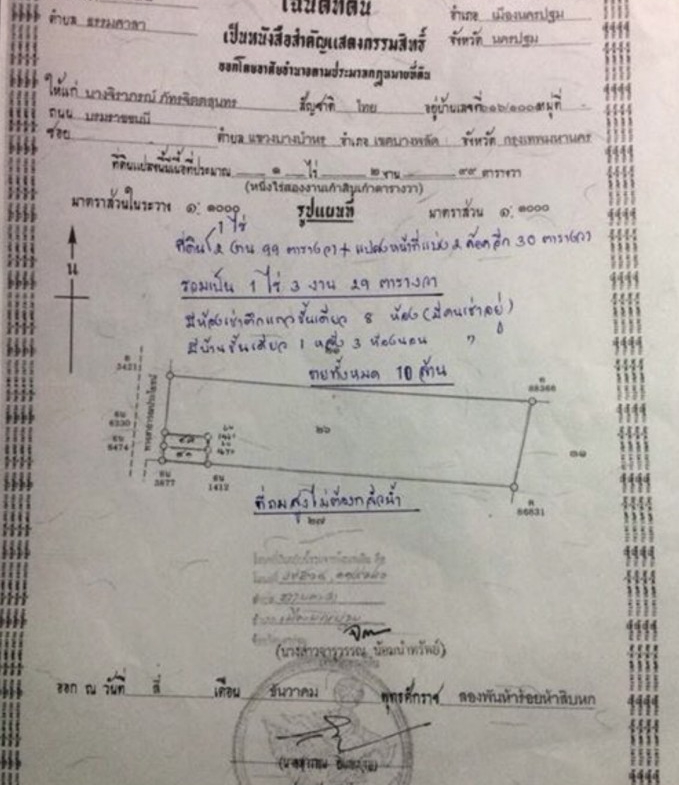 โฉนดที่ดิน
ตำบล ธรรมศาลา
อำเภอ เมืองนครปฐม
เป็นหนังสือสำคัญแสดงกรรมสิทธิ์
จังหวัด นครปฐม
ออกโดยอาศัยอำนาจตามประมวลกฎหมายที่ดิน
ให้แก่ นางจิราภรณ์ สัญชาติ ไทย อยู่บ้านเลขที่ หมู่ที่
ถนน บรมราชชนนี
ซอย ตำบล แขวงบางบำหรุ อำเภอ เขตบางพลัด จังหวัด กรุงเทพมหานคร
ที่ดินแปลงนี้มีเนื้อที่ประมาณ ๑ ไร่ ๒ งาน ๙๙ ตารางวา
(หนึ่งไร่สองงานเก้าสิบเก้าตารางวา)
มาตราส่วนในระวาง ๑: ๑๐๐๐ รูปแผนที่ มาตราส่วน ๑: ๑๐๐๐
1 ไร่
ที่ดิน 2 งาน 99 ตารางวา + แปลงหน้าที่แบ่ง 2 ล็อคอีก 30 ตารางวา
น
รวมเป็น 1 ไร่ 3 งาน 29 ตารางวา
มีห้องเช่าตึกแถวชั้นเดียว 8 ห้อง (มีคนเช่าอยู่)
มีบ้านชั้นเดียว 1 หลัง 3 ห้องนอน "
ขายทั้งหมด 10 ล้าน
3421
88368
ทางสาธารณประโยชน์
๒๖
6330
6474
3877
1412
86831
ที่ถมสูงไม่ต้องกลัวน้ำ
๒๗
ออก ณ วันที่ สี่ เดือน ธันวาคม พุทธศักราช สองพันห้าร้อยห้าสิบหก